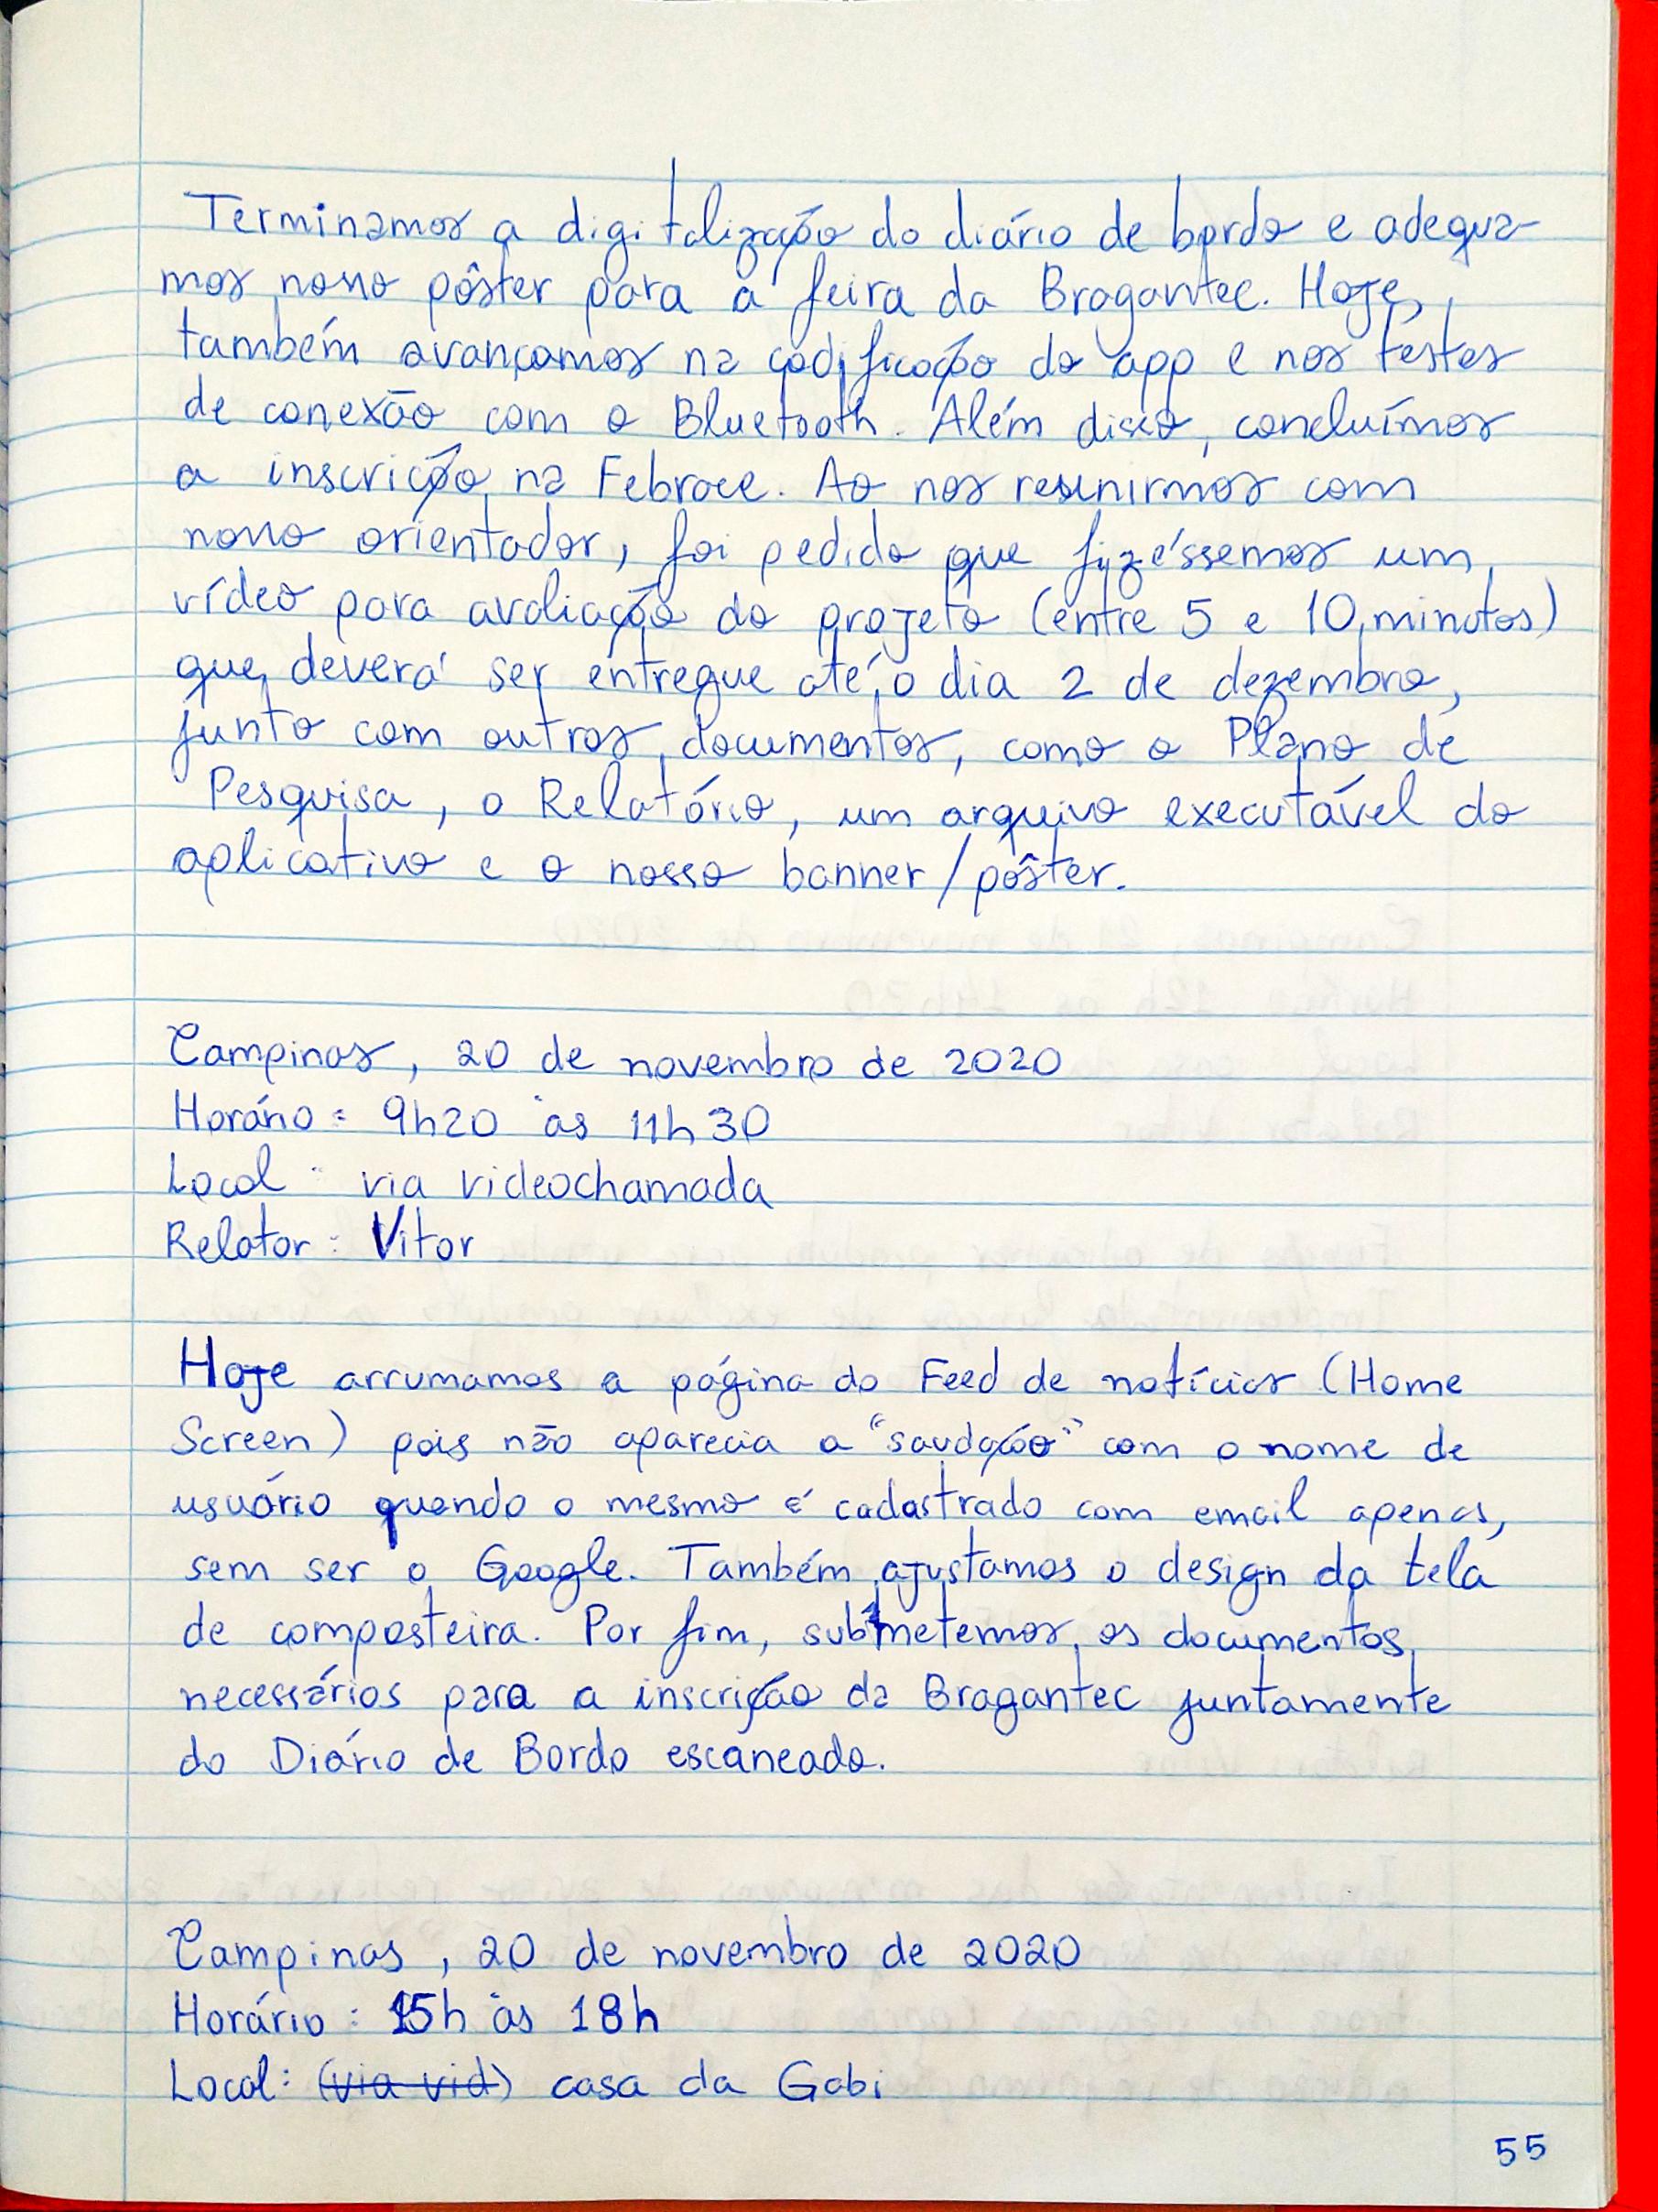 Terminamos a digitalização do diário de bordo e adequa-
mos nosso pôster para a feira da Bragantec. Hoje,
também avançamos na codificação do app e nos testes
de conexão com o Bluetooth. Além disso, concluímos
a inscrição na Febrace. Ao nos reunirmos com
nosso orientador, foi pedido que fizéssemos um
vídeo para avaliação do projeto (entre 5 e 10 minutos)
que deverá ser entregue até o dia 2 de dezembro,
junto com outros documentos, como o Plano de
Pesquisa, o Relatório, um arquivo executável do
aplicativo e o nosso banner/pôster.
Campinas, 20 de novembro de 2020
Horário: 9h20 às 11h30
Local: via videochamada
Relator: Vitor
Hoje arrumamos a página do Feed de notícias (Home
Screen) pois não aparecia a "saudação" com o nome de
usuário quando o mesmo é cadastrado com email apenas,
sem ser o Google. Também ajustamos o design da tela
de composteira. Por fim, submetemos os documentos
necessários para a inscrição da Bragantec juntamente
do Diário de Bordo escaneado.
Campinas, 20 de novembro de 2020
Horário: 15h às 18h
Local: (via vid) casa da Gabi
55